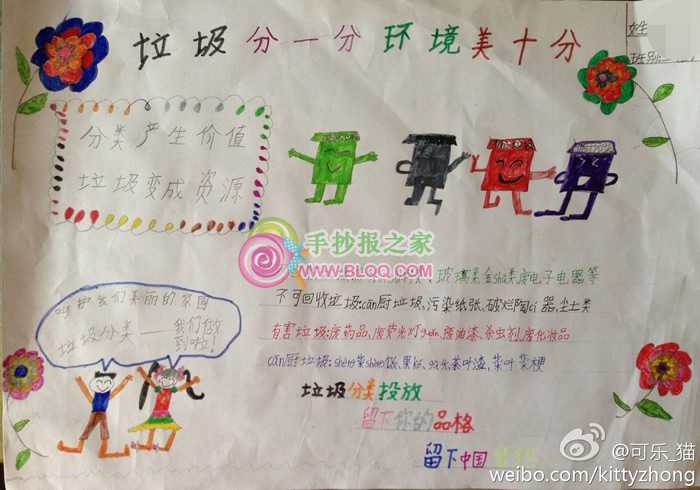 垃圾分一分环境美十分
姓
班别:
分类产生价值
垃圾变成资源
手抄报之家
www.BLQQ.com
玻璃类金shǔ类废电子电器等
不可回收垃圾:cān厨垃圾,污染纸张,破烂陶cí器,尘土类
有害垃圾:废药品,废荧光灯guǎn,废油漆,杀虫剂,废化妆品
cān厨垃圾:shèng菜shèng饭,果皮,茶叶渣,菜叶菜梗
呵护我们美丽的家园
垃圾分类——我们做
到啦!
垃圾分类投放
留下你的品格
留下中国
@可乐_猫
weibo.com/kittyzhong